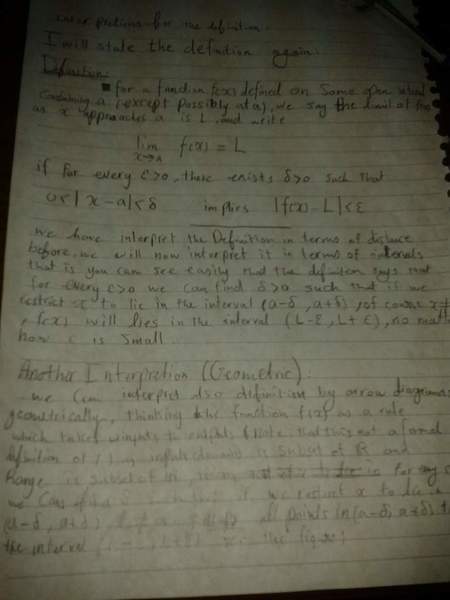 for the definition.
I will state the definition again.
Definition:
for a function f(x) defined on some open interval
containing a (except possibly at a), we say the limit of f(x)
as x approaches a is L, and write
lim f(x) = L
x→a
if for every ε>0, there exists δ>0 such that
0<|x-a|<δ implies |f(x)-L|<ε
we have interpret the Definition in terms of distance
before, we will now interpret it in terms of intervals
that is you can see easily that the definition says that
for every ε>0 we can find δ>0 such that if we
restrict x to lie in the interval (a-δ, a+δ), of course x≠
, f(x) will lies in the interval (L-ε, L+ε), no matt
how ε is small.
Another Interpretion (Geometric)
we can interpret also definition by arrow diagrams
geometrically, thinking the function f(x) as a rule
which takes inputs to outputs (Note that this not a formal
definition of is subset of R and
Range is subset of for any
we can we restrict x to lie in
(a-δ, a+δ) all points in (a-δ, a+δ) t
the interval the figure